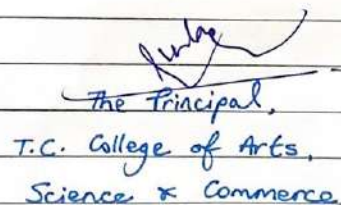 The Principal,
T.C. College of Arts,
Science & Commerce